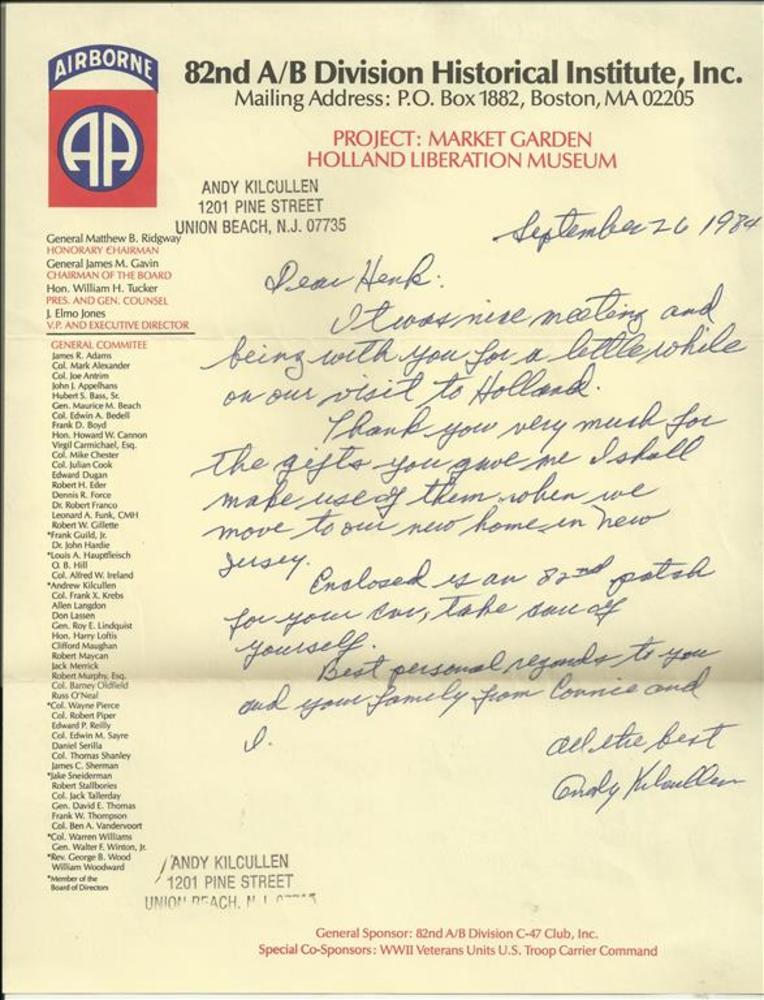 AIRBORNE
AA
82nd A/B Division Historical Institute, Inc.
Mailing Address: P.O. Box 1882, Boston, MA 02205
PROJECT: MARKET GARDEN
HOLLAND LIBERATION MUSEUM
ANDY KILCULLEN
1201 PINE STREET
UNION BEACH, N.J. 07735
General Matthew B. Ridgway
HONORARY CHAIRMAN
General James M. Gavin
CHAIRMAN OF THE BOARD
Hon. William H. Tucker
PRES. AND GEN. COUNSEL
J. Elmo Jones
V.P. AND EXECUTIVE DIRECTOR
GENERAL COMMITEE
James R. Adams
Col. Mark Alexander
Col. Joe Antrim
John J. Appelhans
Hubert S. Bass, Sr.
Gen. Maurice M. Beach
Col. Edwin A. Bedell
Frank D. Boyd
Hon. Howard W. Cannon
Virgil Carmichael, Esq.
Col. Mike Chester
Col. Julian Cook
Edward Dugan
Robert H. Eder
Dennis R. Force
Dr. Robert Franco
Leonard A. Funk, CMH
Robert W. Gillette
*Frank Guild, Jr.
Dr. John Hardie
*Louis A. Hauptfleisch
O. B. Hill
Col. Alfred W. Ireland
*Andrew Kilcullen
Col. Frank X. Krebs
Allen Langdon
Don Lassen
Gen. Roy E. Lindquist
Hon. Harry Loftis
Clifford Maughan
Robert Maycan
Jack Merrick
Robert Murphy, Esq.
Col. Barney Oldfield
Russ O'Neal
*Col. Wayne Pierce
Col. Robert Piper
Edward P. Reilly
Col. Edwin M. Sayre
Daniel Serilla
Col. Thomas Shanley
James C. Sherman
*Jake Sneiderman
Robert Stallbories
Col. Jack Tallerday
Gen. David E. Thomas
Frank W. Thompson
Col. Ben A. Vandervoort
*Col. Warren Williams
Gen. Walter F. Winton, Jr.
*Rev. George B. Wood
William Woodward
*Member of the
Board of Directors
September 26 1984
Dear Henk:
It was nice meeting and
being with you for a little while
on our visit to Holland.
Thank you very much for
the gifts you gave me I shall
make use of them when we
move to our new home in New
Jersey.
Enclosed is an 82nd patch
for your car, take care of
yourself.
Best personal regards to you
and your family from Connie and
I.
All the best
Andy Kilcullen
ANDY KILCULLEN
1201 PINE STREET
UNION BEACH, N.J.
General Sponsor: 82nd A/B Division C-47 Club, Inc.
Special Co-Sponsors: WWII Veterans Units U.S. Troop Carrier Command